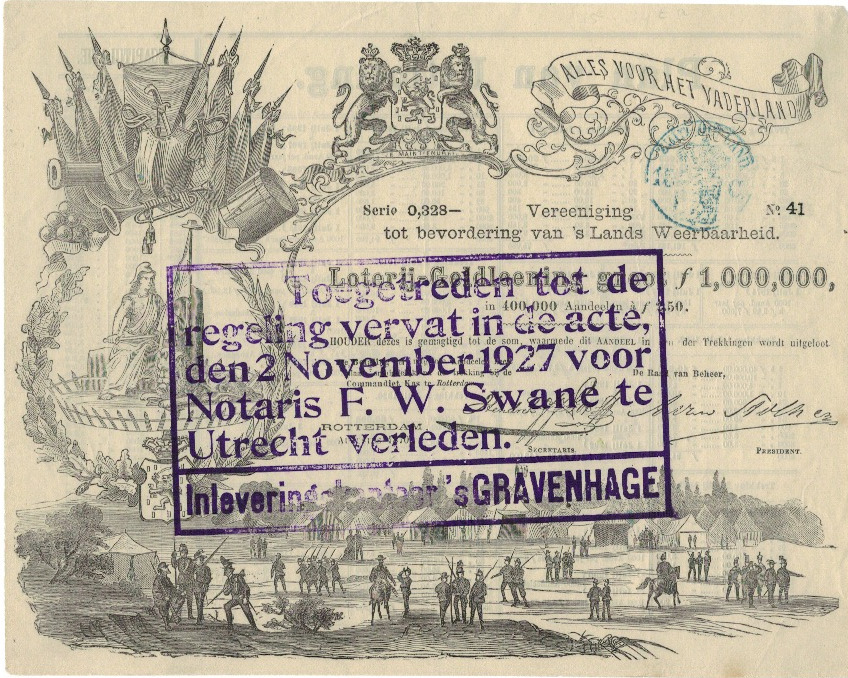 ALLES VOOR HET VADERLAND
JE MAINTIENDRAI
Serie 0,328— Vereeniging No. 41
tot bevordering van 's Lands Weerbaarheid.
Loterij-Geldleening groot ƒ 1,000,000,
in 400,000 Aandeelen à ƒ 2.50.
HOUDER dezes is gemagtigd tot de som, waarmede dit AANDEEL in der Trekkingen wordt uitgeloot
bij de De Raad van Beheer,
Commandiet. Kas te Rotterdam
ROTTERDAM,
SECRETARIS. PRESIDENT.
Toegetreden tot de
regeling vervat in de acte,
den 2 November 1927 voor
Notaris F. W. Swane te
Utrecht verleden.
Inleveringskantoor 'sGRAVENHAGE